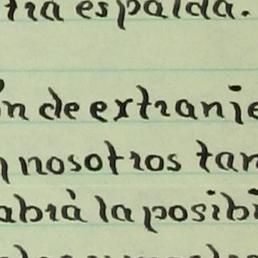 tra espalda.
n de extranje
nosotros tan
abrà la posibi